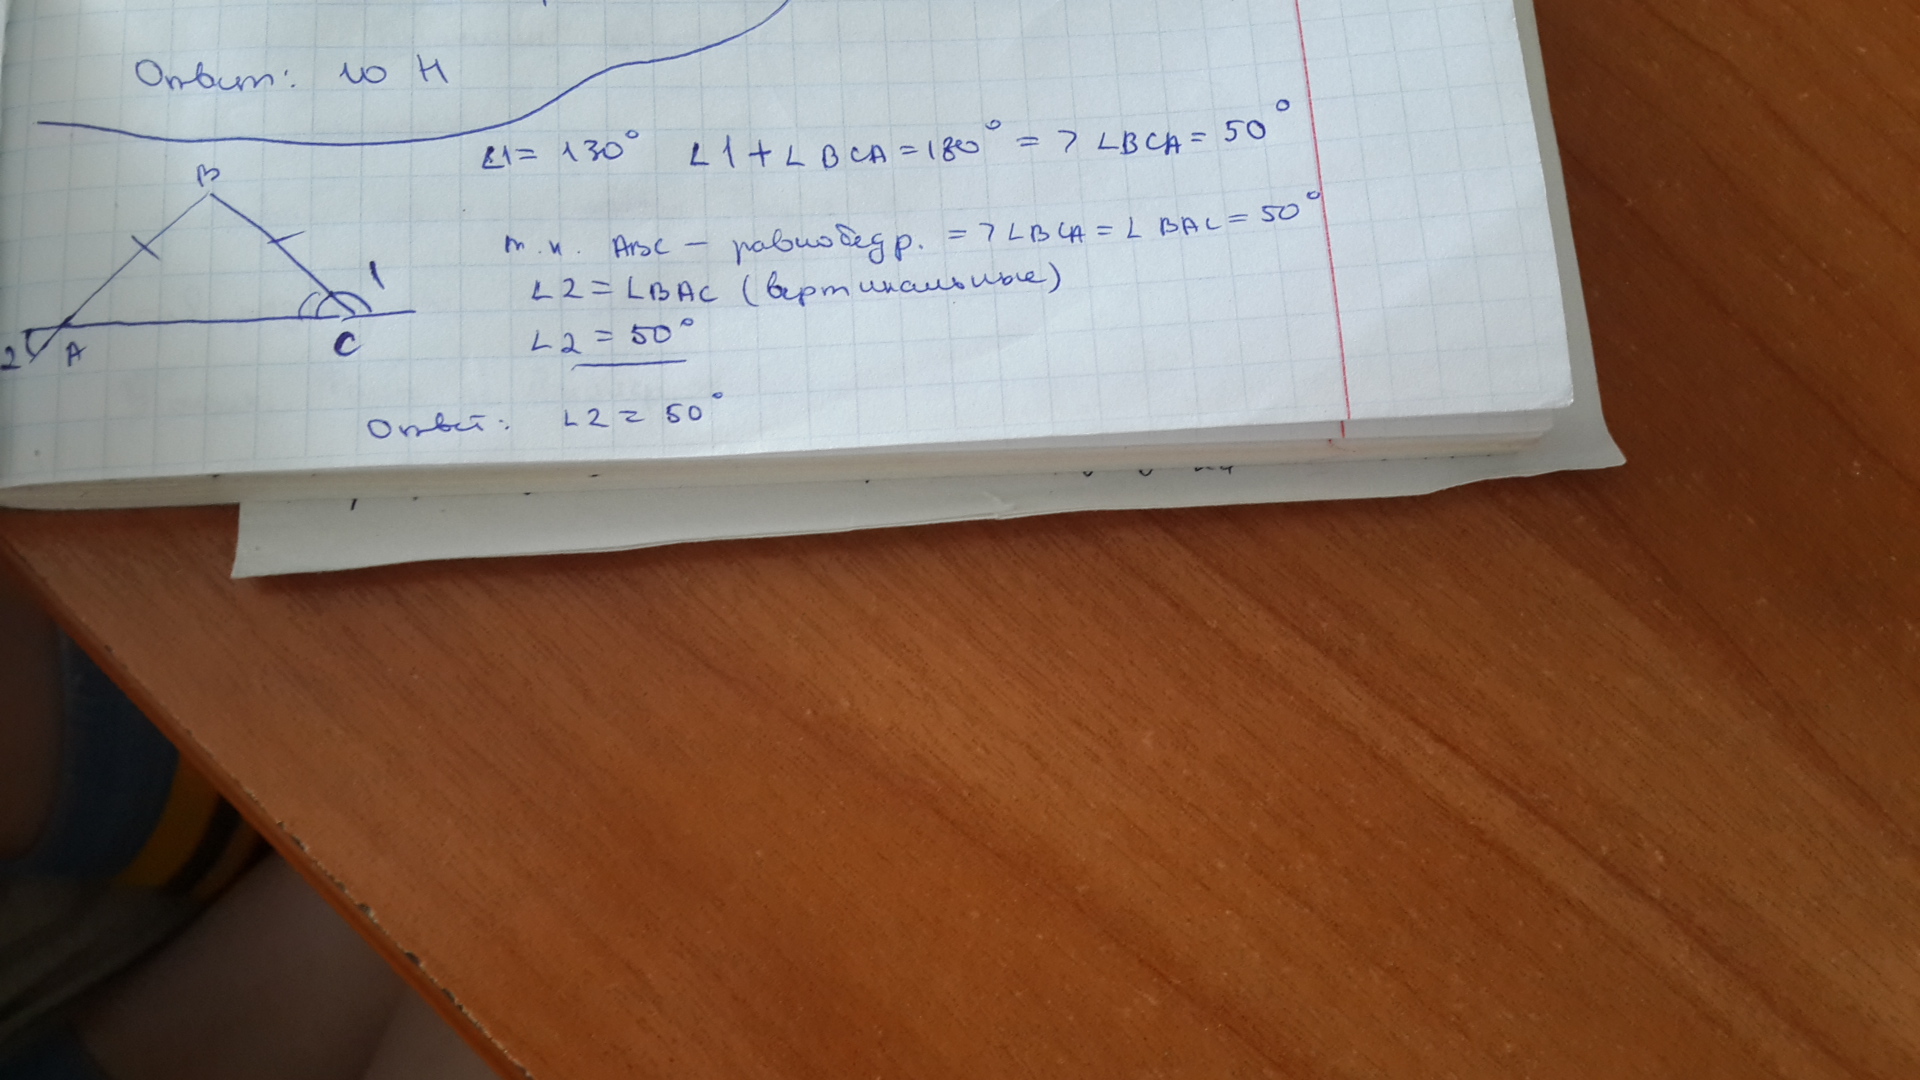 Ответ: 10 Н
∠1 = 130° ∠1 + ∠BCA = 180° => ∠BCA = 50°
B
т.к. ABC – равнобедр. => ∠BCA = ∠BAC = 50°
1
∠2 = ∠BAC (вертикальные)
∠2 = 50°
2 A C
Ответ: ∠2 = 50°